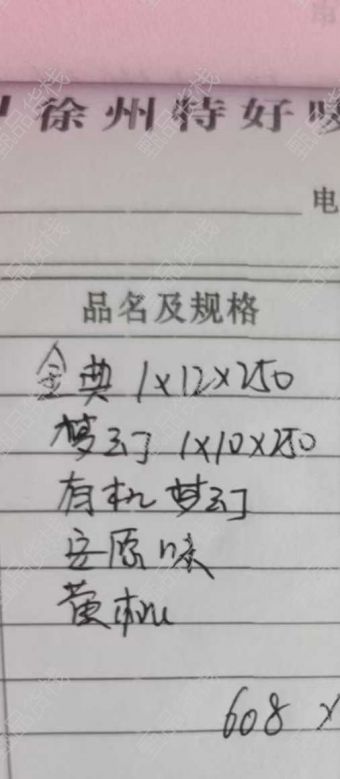 徐州特好
电
品名及规格
金典 1×12×250
梦幻 1×10×250
有机梦幻
安原味
黄桃
608 ×